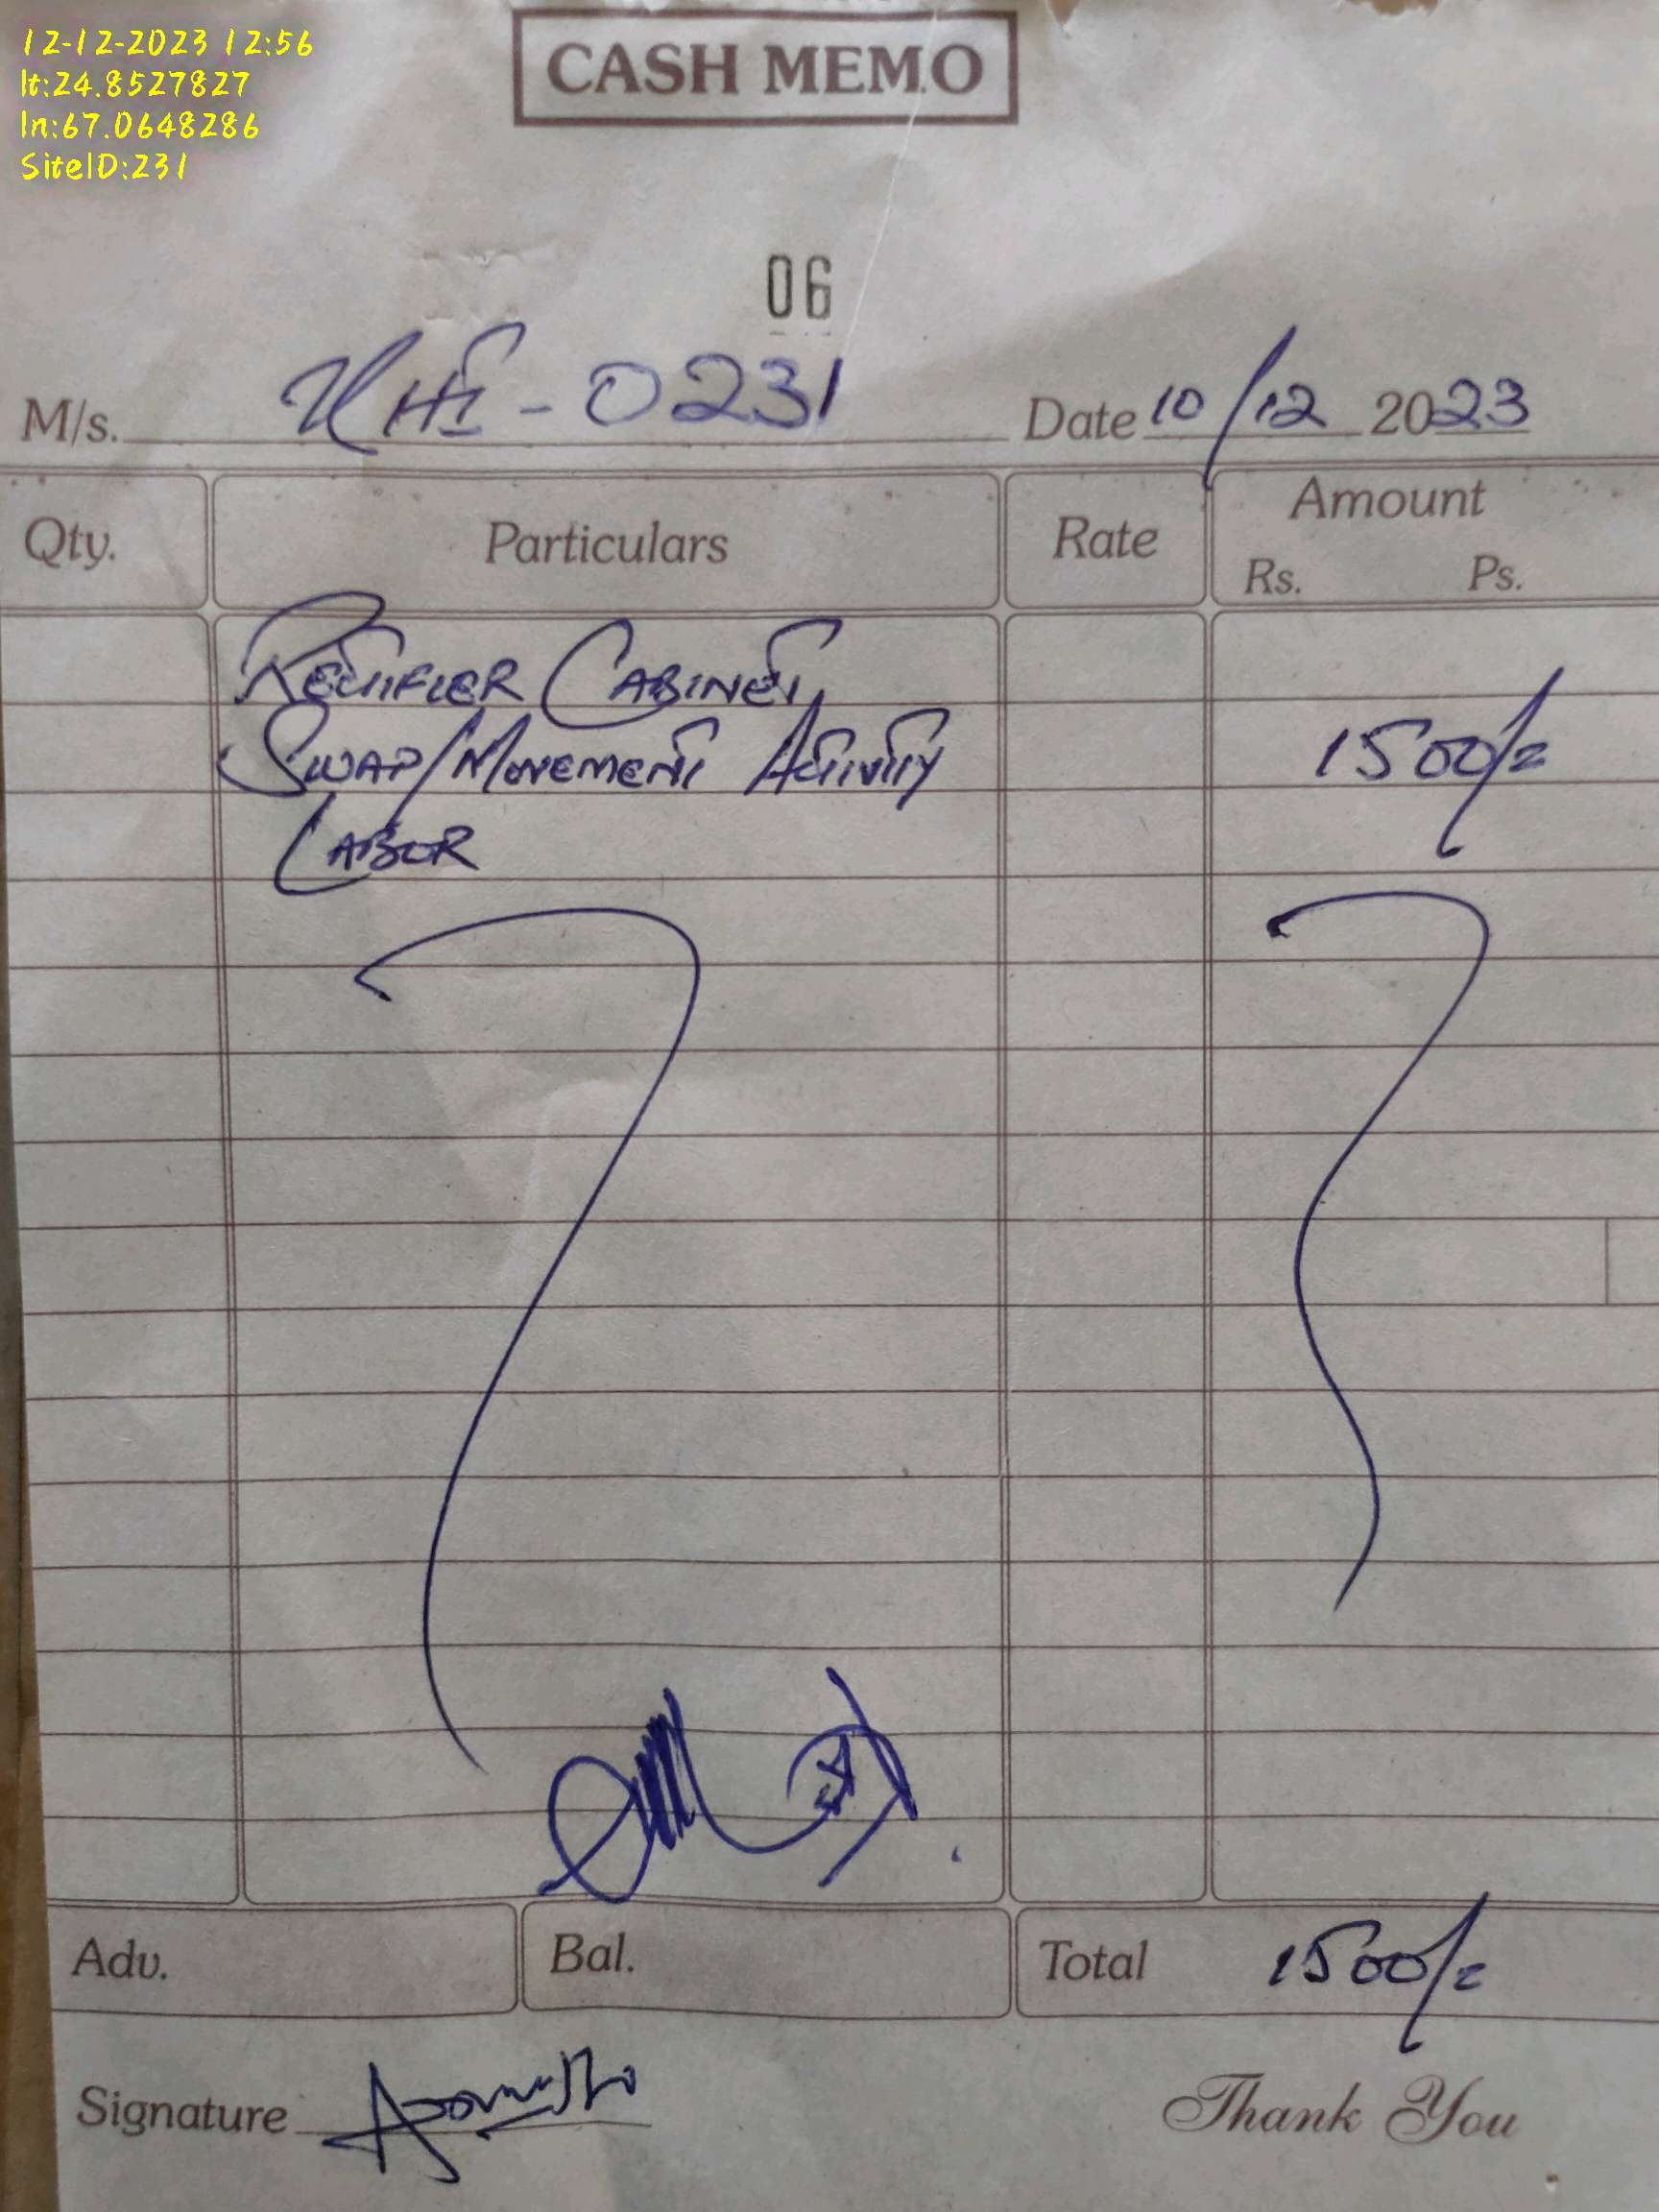 12-12-2023 12:56
lt:24.8527827
ln:67.0648286
SiteID:231
CASH MEMO
06
M/s. KHI-0231 Date 10/12 2023
Qty. Particulars Rate Amount
Rs. Ps.
RECTIFIER CABINET
SWAP/MOVEMENT ACTIVITY 1500/=
LABOR
Adv. Bal. Total 1500/=
Signature
Thank You